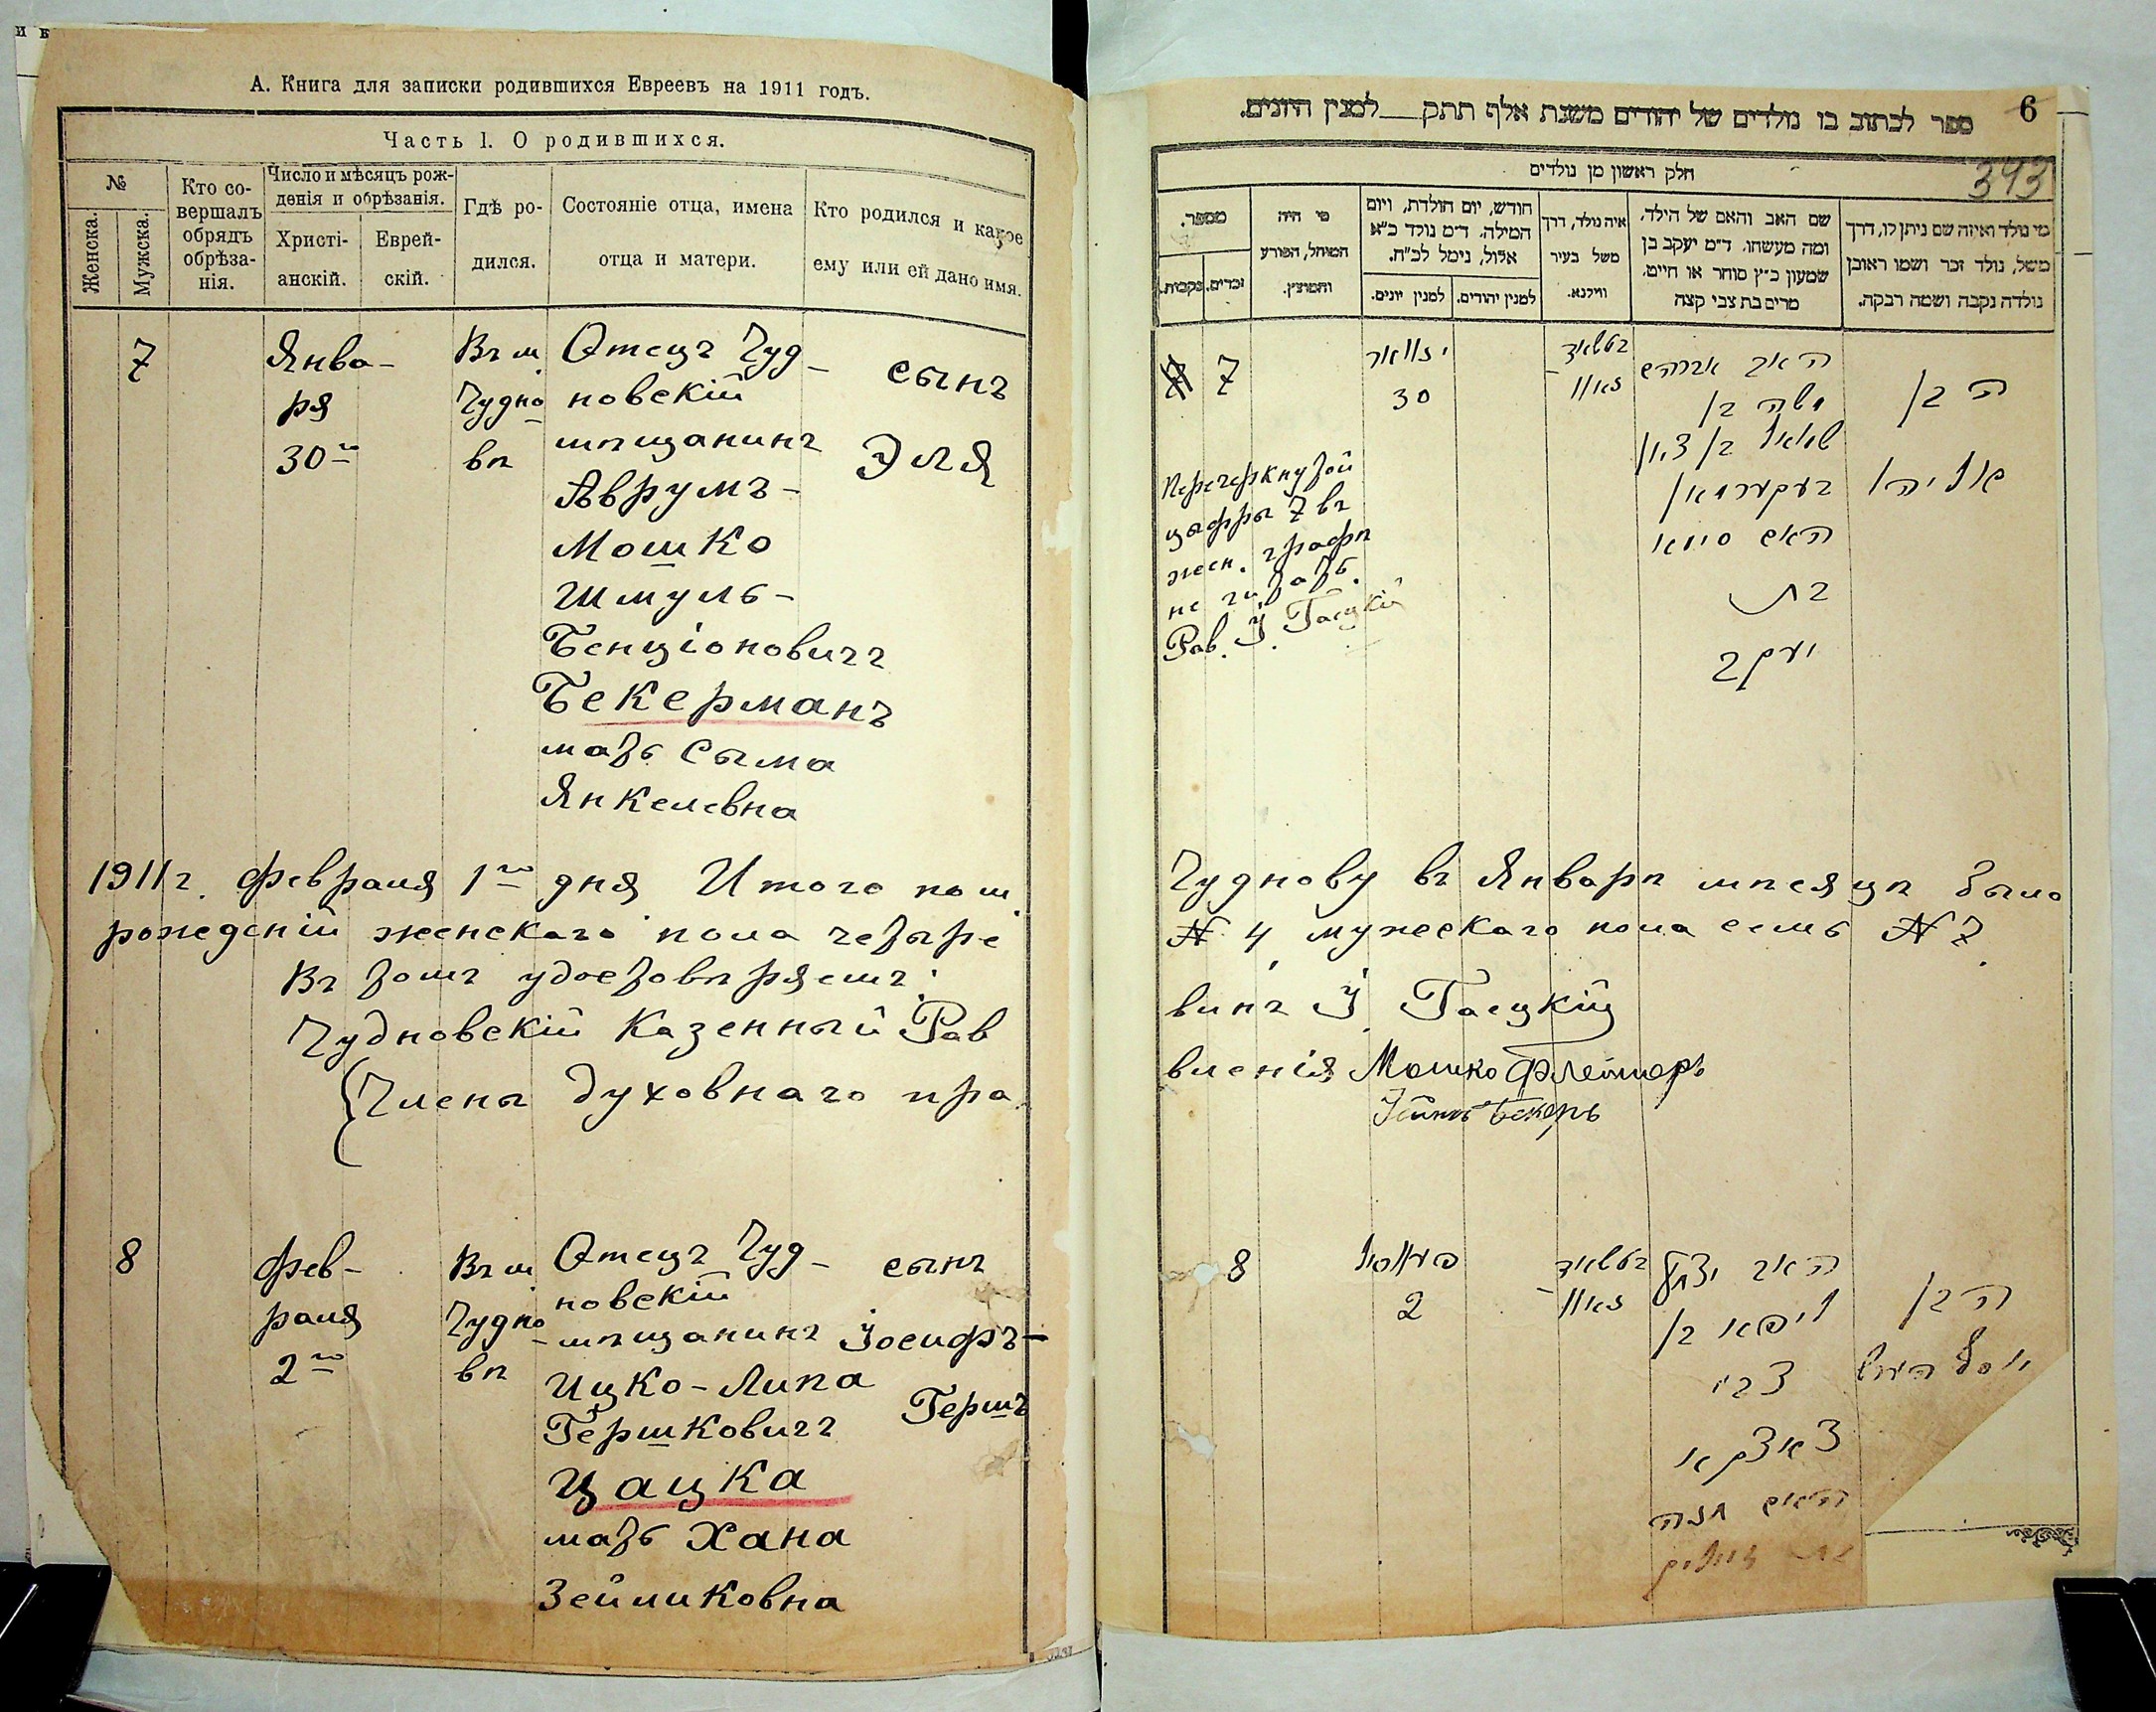 А. Книга для записки родившихся Евреевъ на 1911 годъ.
Часть I. О родившихся.
№
Женска.
Мужска.
Кто со-
вершалъ
обрядъ
обрѣза-
нія.
Число и мѣсяцъ рож-
денія и обрѣзанія.
Христі-
анскій.
Еврей-
скій.
Гдѣ ро-
дился.
Состояніе отца, имена
отца и матери.
Кто родился и какое
ему или ей дано имя.
7
Янва-
ря
30го
Въ м.
Чудно-
вѣ
Отецъ Чуд-
новскій
мѣщанинъ
Аврумъ-
Мошко
Шмуль-
Бенціоновичъ
Бекерманъ
мать Сыма
Янкелевна
сынъ
Эля
1911 г. февраля 1го дня Итого по м.
рожденій женскаго пола четыре
Въ томъ удостовѣряемъ:
Чудновскій Казенный Рав
Члены духовнаго пра
8
фев-
раля
2го
Въ м.
Чудно-
вѣ
Отецъ Чуд-
новскій
мѣщанинъ
Ицко-Липа
Гершковичъ
Цацка
мать Хана
Зейликовна
сынъ
Іосифъ-
Гершъ
6
ספר לכתוב בו נולדים של יהודים משנת אלף תתק למנין היונים.
343
חלק ראשון מן נולדים
מספר.
נקבות.
זכרים.
מי היה
המוהל, הפורע
והמוצץ.
חודש, יום הולדת, ויום
המילה. ד״מ נולד כ״א
אלול, נימל לכ״ח.
למנין יונים.
למנין יהודים.
איה נולד, דרך
משל בעיר
ווילנא.
שם האב והאם של הילד,
ומה מעשהו. ד״מ יעקב בן
שמעון כ״ץ סוחר או חייט,
מרים בת צבי קצה
מי נולד ואיזה שם ניתן לו, דרך
משל, נולד זכר ושמו ראובן
נולדה נקבה ושמה רבקה.
7 7
ינואר
30
האב אברהם
משה בן
שמואל בן ציון
בעקערמאן
האם סימא
בת
יעקב
הבן
אליהו
Перечеркнутой
цыфры 7 въ
жен. графѣ
не читать.
Рав. І. Гасцкій
Чуднову въ Январѣ мѣсяцѣ было
№ 4, мужескаго пола семь № 7.
винъ І. Гасцкій
вленія Мошко Флейтеръ
8
2
האב יצחק
ליפא בן
צבי
צאצקא
האם חנה
הבן
יוסף הערש